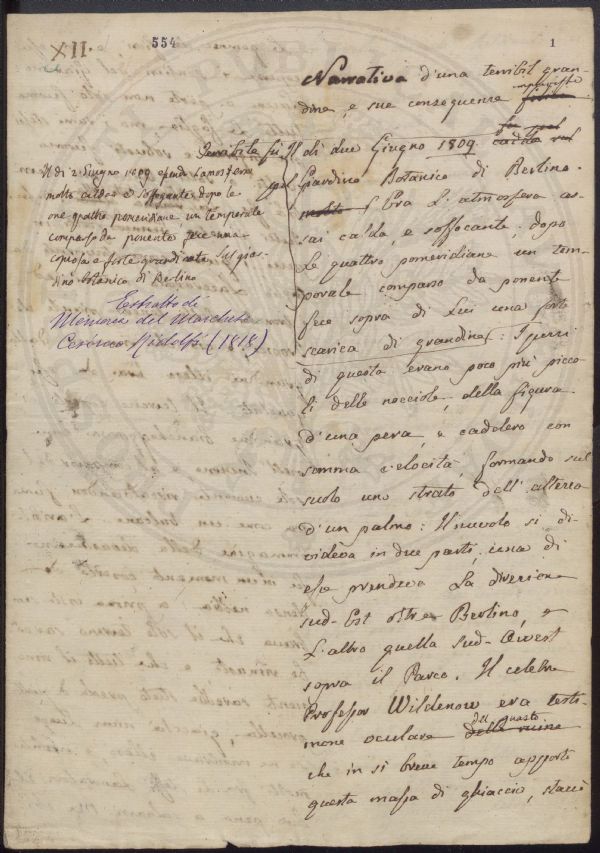 XII.
554
1
Narrativa d'una terribil gran-
dine, e sue conseguenze
Terribile fu
Il dì 2. Giugno 1809 essendo l'atmosfera
molto calda e soffogante dopo le
ore quattro pomeridiane, un temporale
comparso da ponente fece una
copiosa e forte grandinata sul giar-
dino botanico di Berlino
Estratto di
Memoria del Marchese
Cosimo Ridolfi (1818)
Il dì due Giugno 1809. caldo sul
Giardino Botanico di Berlino.
molto Era l'atmosfera as-
sai calda, e soffocante; dopo
le quattro pomeridiane un tem-
porale comparso da ponente
fece sopra di Lui una forte
scarica di grandine: I pezzi
di questa erano poco più picco
li delle nocciole, della figura
d'una pera, e caddero con
somma velocità, formando sul
suolo uno strato dell'altezza
d'un palmo: Il nuvolo si di-
videva in due parti, una di
esse prendeva la direzione
sud-Est oltre Berlino, e
l'altro quella Sud-Owest
sopra il Parco. Il celebre
Professor Wildenow era testi-
mone oculare delle ruine
del guasto
che in sì breve tempo apportò
questa massa di ghiaccio, stacca